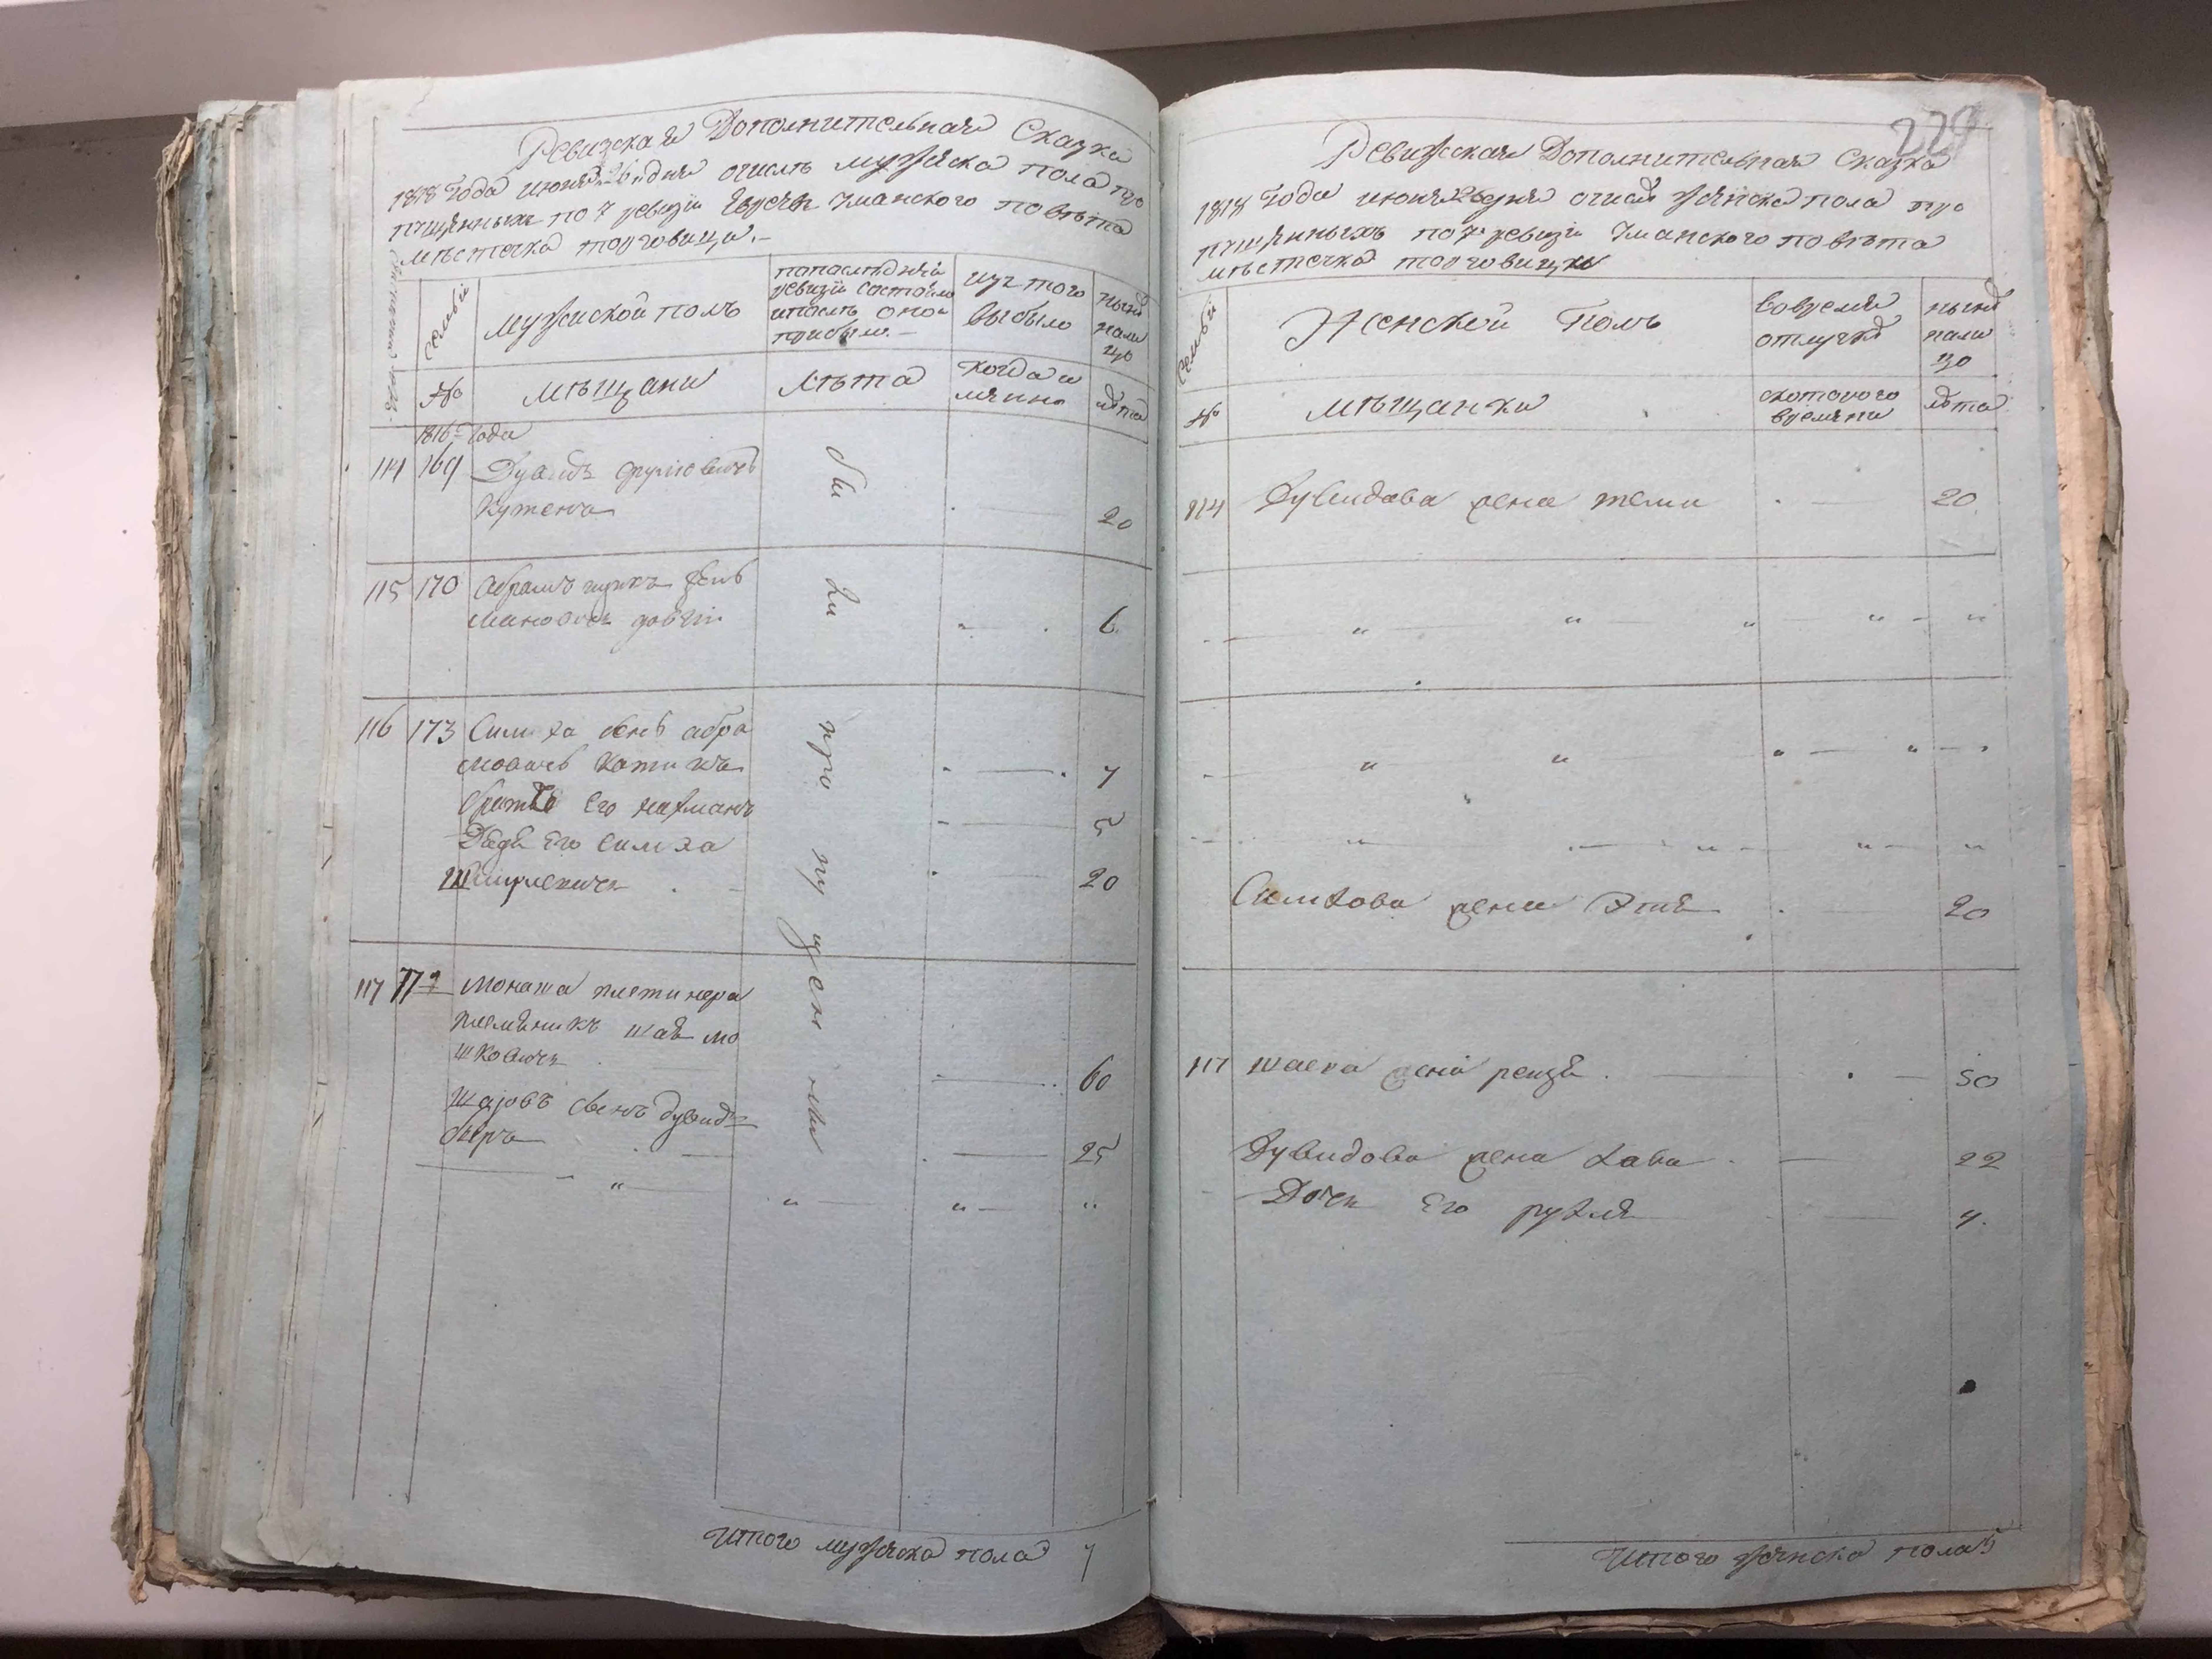 Ревизская Дополнительная Сказка
1818 года июня 26 дня очисле мужеска пола про
пущенныхъ по 7 ревизiи Евреяхъ Уманского повета
местечка торговици.-
Семьи
мужиской полъ
попоследней
ревизiи состояло
ипосле оной
прибыло.-
изъ того
выбыло
ныне
нали
цо
№
мещани
лета
когда и
имянно
лета
1816 года
114 169
Кутенъ
были
20
115 170 Абрамъ
6
116 173 Симха сынъ абра
мовичъ
7
братъ Его нахманъ
5
Дядя Его симха
Шмулевичъ 20
пропущенными
117 Монаша
племянникъ шая мо
шковичъ
60
шаювъ сынъ дувидъ
беръ
25
Итого мужеска пола 7
229
Ревизская Дополнительная Сказка
1818 года июня 26 дня очисле женска пола про
пущенныхъ по 7 ревизiи Уманского повета
местечка торговицы
Семьи
Женской Полъ
вовремян
отлучке
ныне
нали
цо
№
мещанки
скотового
времяни
лета
114 Дувидова жена 20
Симхова жена Этя 20
117 шаева жена рейзя 50
Дувидова жена хава 22
Дочь Его рухля
Итого женска пола 5